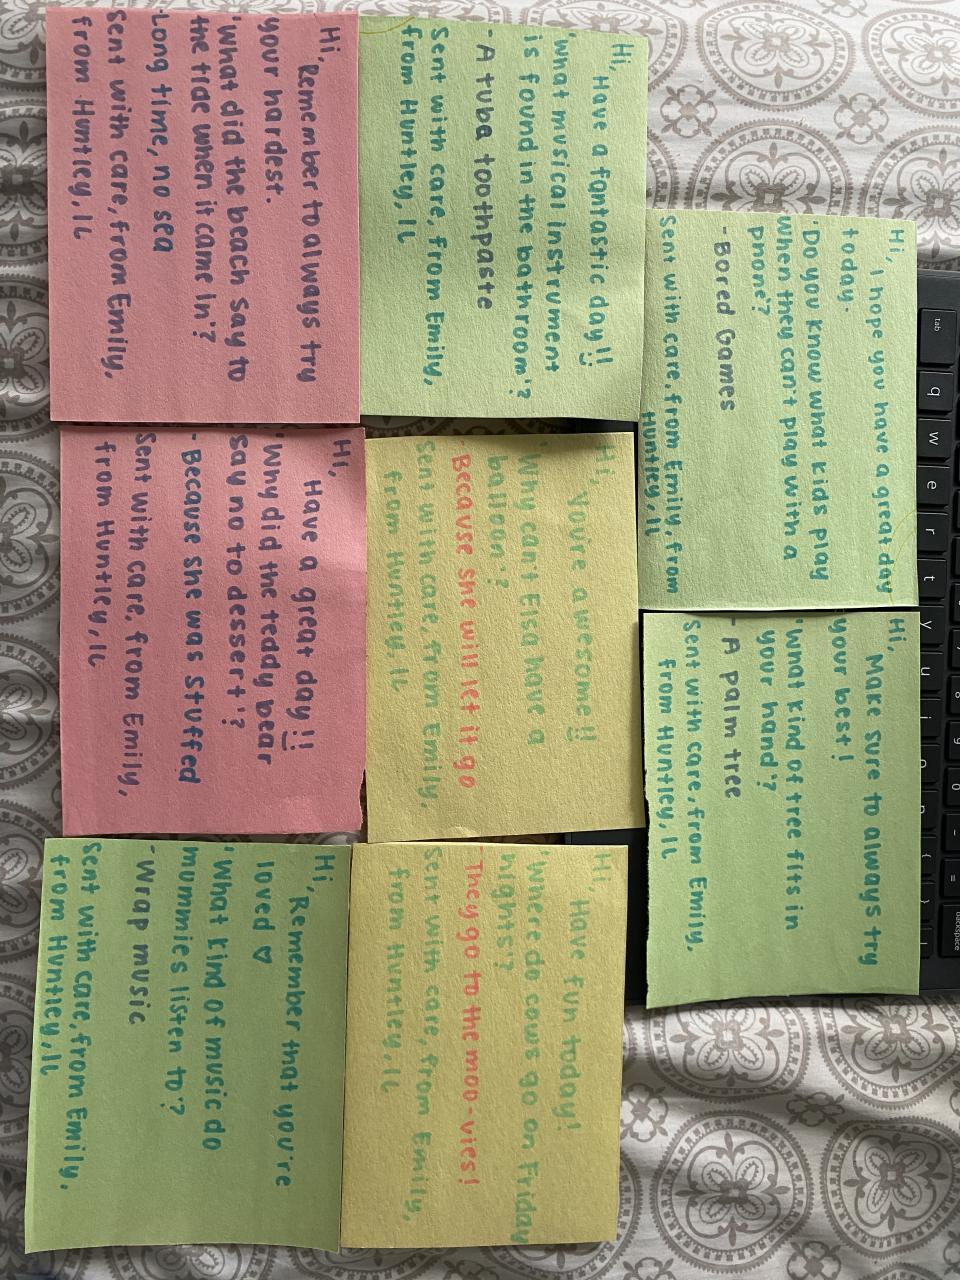 Hi, I hope you have a great day
today.
'Do you know what kids play
when they can't play with a
phone'?
- Bored Games
Sent with care, from Emily, from
Huntley, IL
Hi, Make sure to always try
your best!
'What kind of tree fits in
your hand'?
- A palm tree
Sent with care, from Emily,
from Huntley, IL
Hi, Have a fantastic day!!
'What musical instrument
is found in the bathroom'?
- A tuba toothpaste
Sent with care, from Emily,
from Huntley, IL
Hi, You're awesome!!
'Why can't Elsa have a
balloon'?
- Because she will let it go
Sent with care, from Emily,
from Huntley, IL
Hi, Have fun today!
'Where do cows go on Friday
nights'?
- They go to the moo-vies!
Sent with care, from Emily,
from Huntley, IL
Hi, Remember to always try
your hardest.
'What did the beach say to
the tide when it came in'?
- Long time, no sea
Sent with care, from Emily,
from Huntley, IL
Hi, Have a great day!!
'Why did the teddy bear
say no to dessert'?
- Because she was stuffed
Sent with care, from Emily,
from Huntley, IL
Hi, Remember that you're
loved ♡
'What kind of music do
mummies listen to'?
- Wrap music
Sent with care, from Emily,
from Huntley, IL
tab
q
w
e
r
t
y
u
i
o
p
backspace